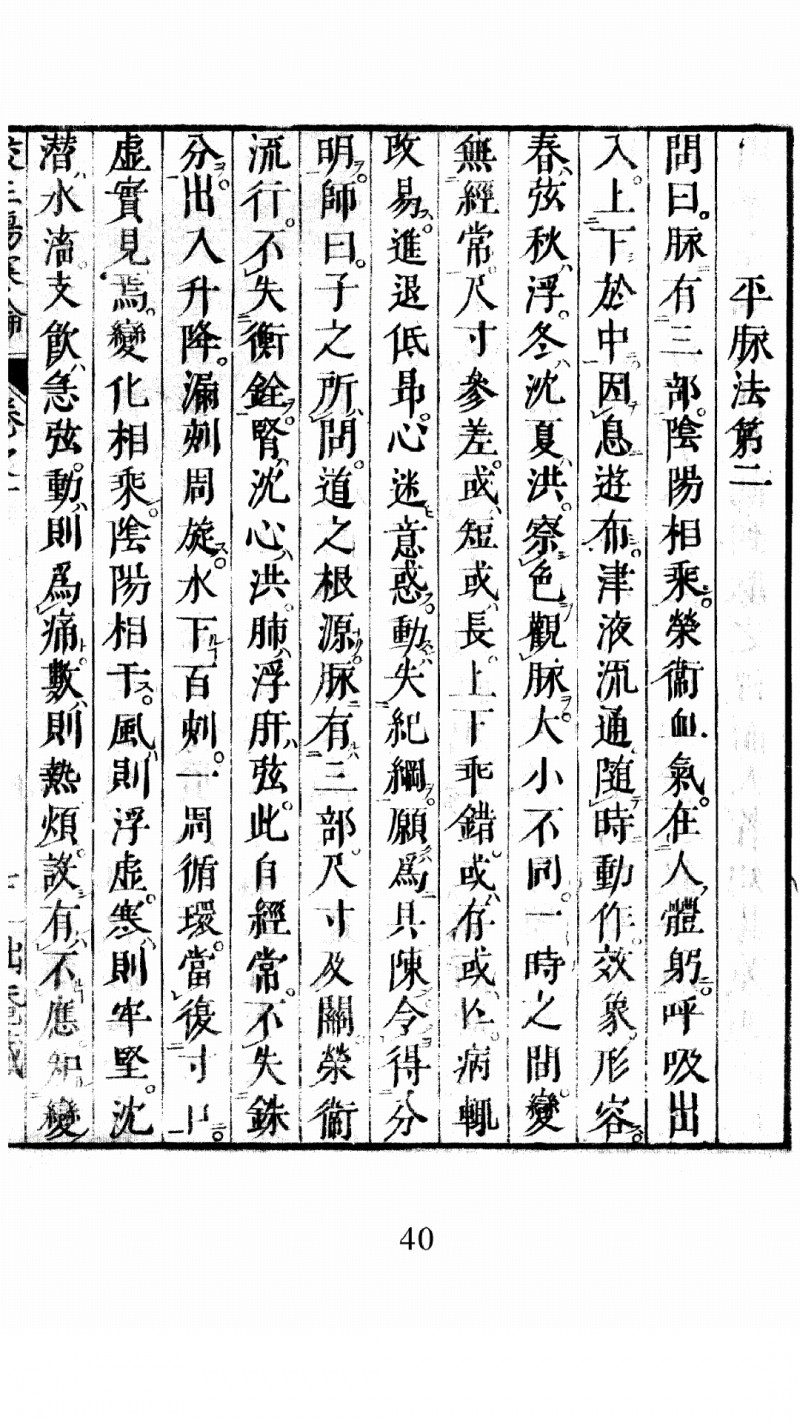 平脉法第二
問曰。脉有三部。陰陽相乘。榮衞血氣。在人體躬。呼吸出
入。上下於中。因息遊布。津液流通。隨時動作。效象形容。
春弦秋浮。冬沈夏洪。察色觀脉。大小不同。一時之間。變
無經常。尺寸參差。或短或長。上下乖錯。或存或亡。病輒
改易。進退低昂。心迷意惑。動失紀綱。願爲具陳。令得分
明。師曰。子之所問。道之根源。脉有三部。尺寸及關。榮衞
流行。不失衡銓。腎沈心洪。肺浮肝弦。此自經常。不失銖
分。出入升降。漏刻周旋。水下百刻。一周循環。當復寸口。
虛實見焉。變化相乘。陰陽相干。風則浮虛。寒則牢堅。沈
潜水滀。支飮急弦。動則爲痛。數則熱煩。設有不應。知變
傷寒論
40